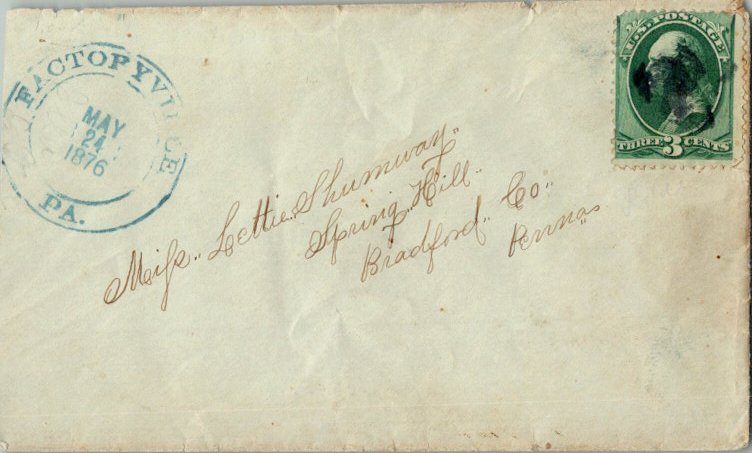 FACTORYVILLE
MAY
24
1876
PA.
U.S. POSTAGE
THREE 3 CENTS
Miss Lettie Shumway
Spring Hill
Bradford Co
Penna